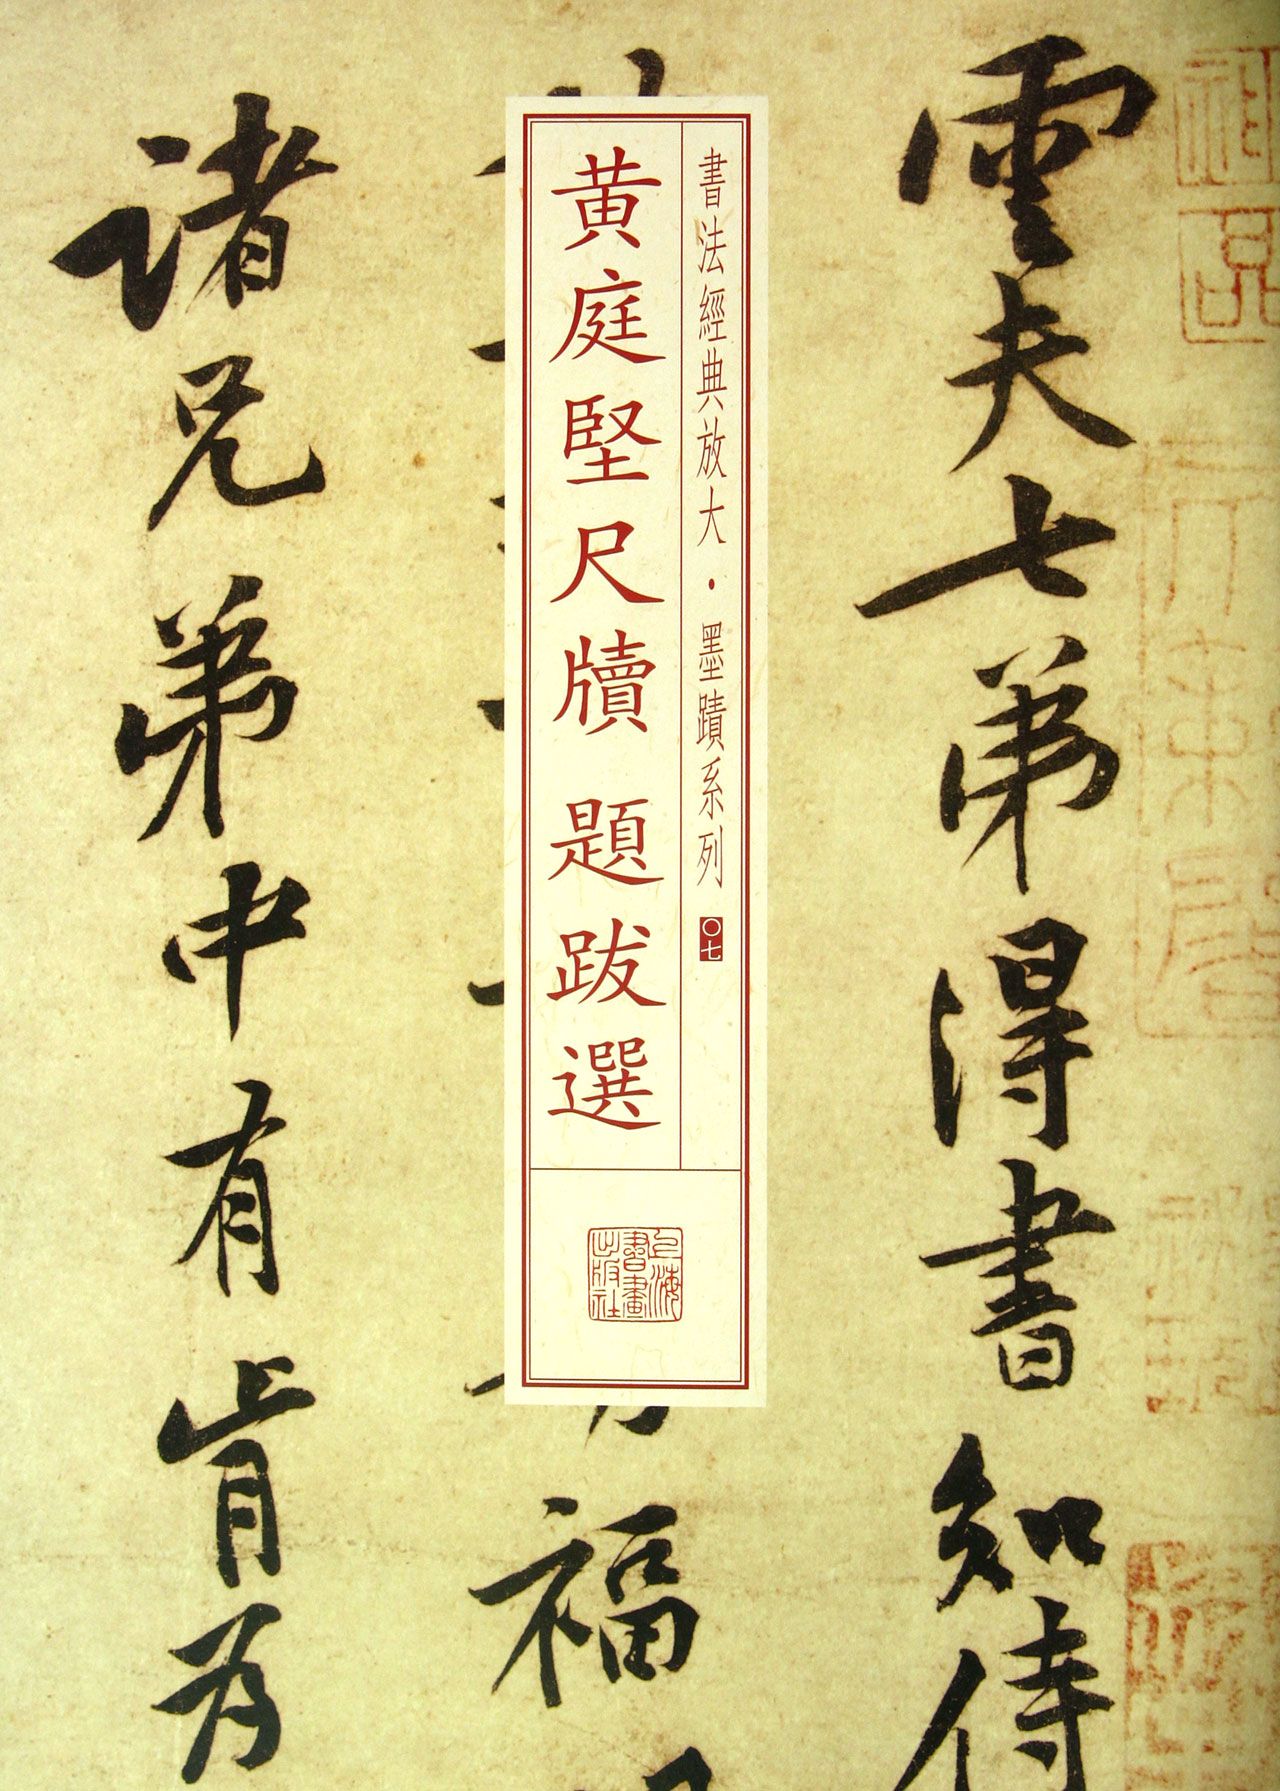 雲夫七弟得書知侍
福
諸兄弟中有肯為
書法經典放大・墨蹟系列 〇七
黄庭堅尺牘 題跋選
上海書畫出版社